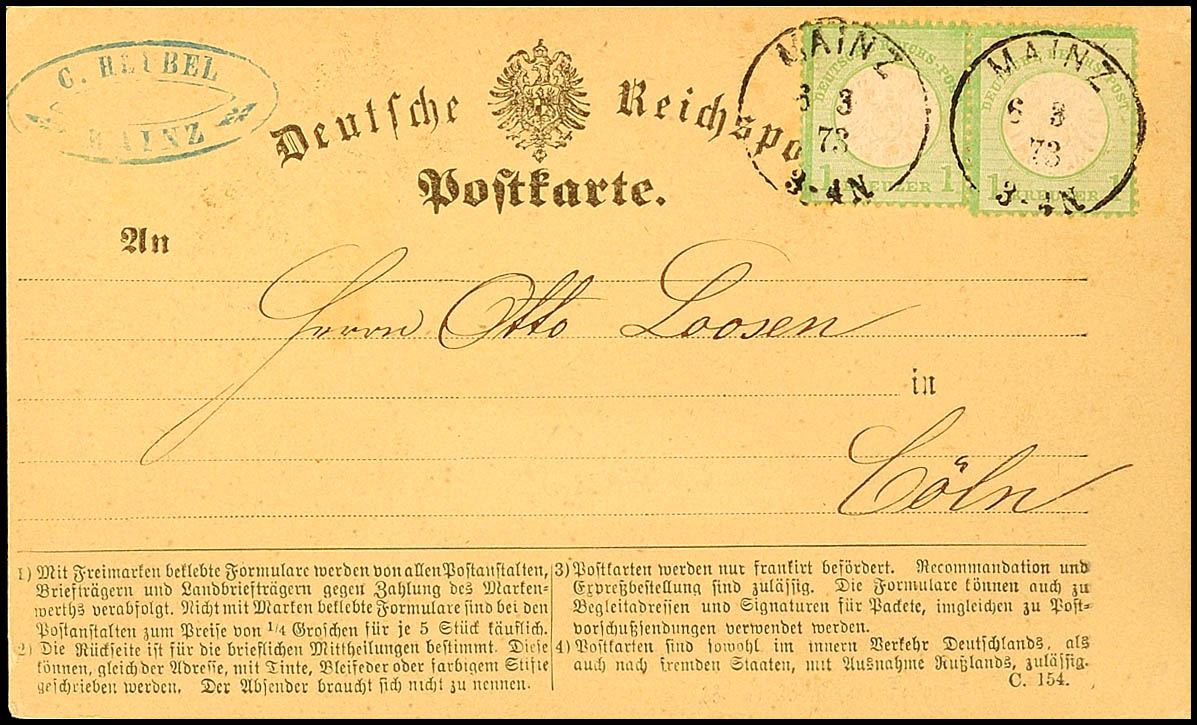 C. HEUBEL
MAINZ
Deutsche Reichspo
Postkarte.
MAINZ
6 3
73
3-4N
DEUTSCHE REICHS-POST
1 KREUZER 1
MAINZ
6 3
73
3-4N
DEUTSCHE REICHS-POST
1 KREUZER 1
An
Herrn Otto Loosen
in
Cöln
1) Mit Freimarken beklebte Formulare werden von allen Postanstalten,
Briefträgern und Landbriefträgern gegen Zahlung des Marken-
werths verabfolgt. Nicht mit Marken beklebte Formulare sind bei den
Postanstalten zum Preise von 1/4 Groschen für je 5 Stück käuflich.
2) Die Rückseite ist für die brieflichen Mittheilungen bestimmt. Diese
können, gleich der Adresse, mit Tinte, Bleifeder oder farbigem Stifte
geschrieben werden. Der Absender braucht sich nicht zu nennen.
3) Postkarten werden nur frankirt befördert. Recommandation und
Expreßbestellung sind zulässig. Die Formulare können auch zu
Begleitadressen und Signaturen für Packete, imgleichen zu Post-
vorschußsendungen verwendet werden.
4) Postkarten sind sowohl im innern Verkehr Deutschlands, als
auch nach fremden Staaten, mit Ausnahme Rußlands, zulässig.
C. 154.